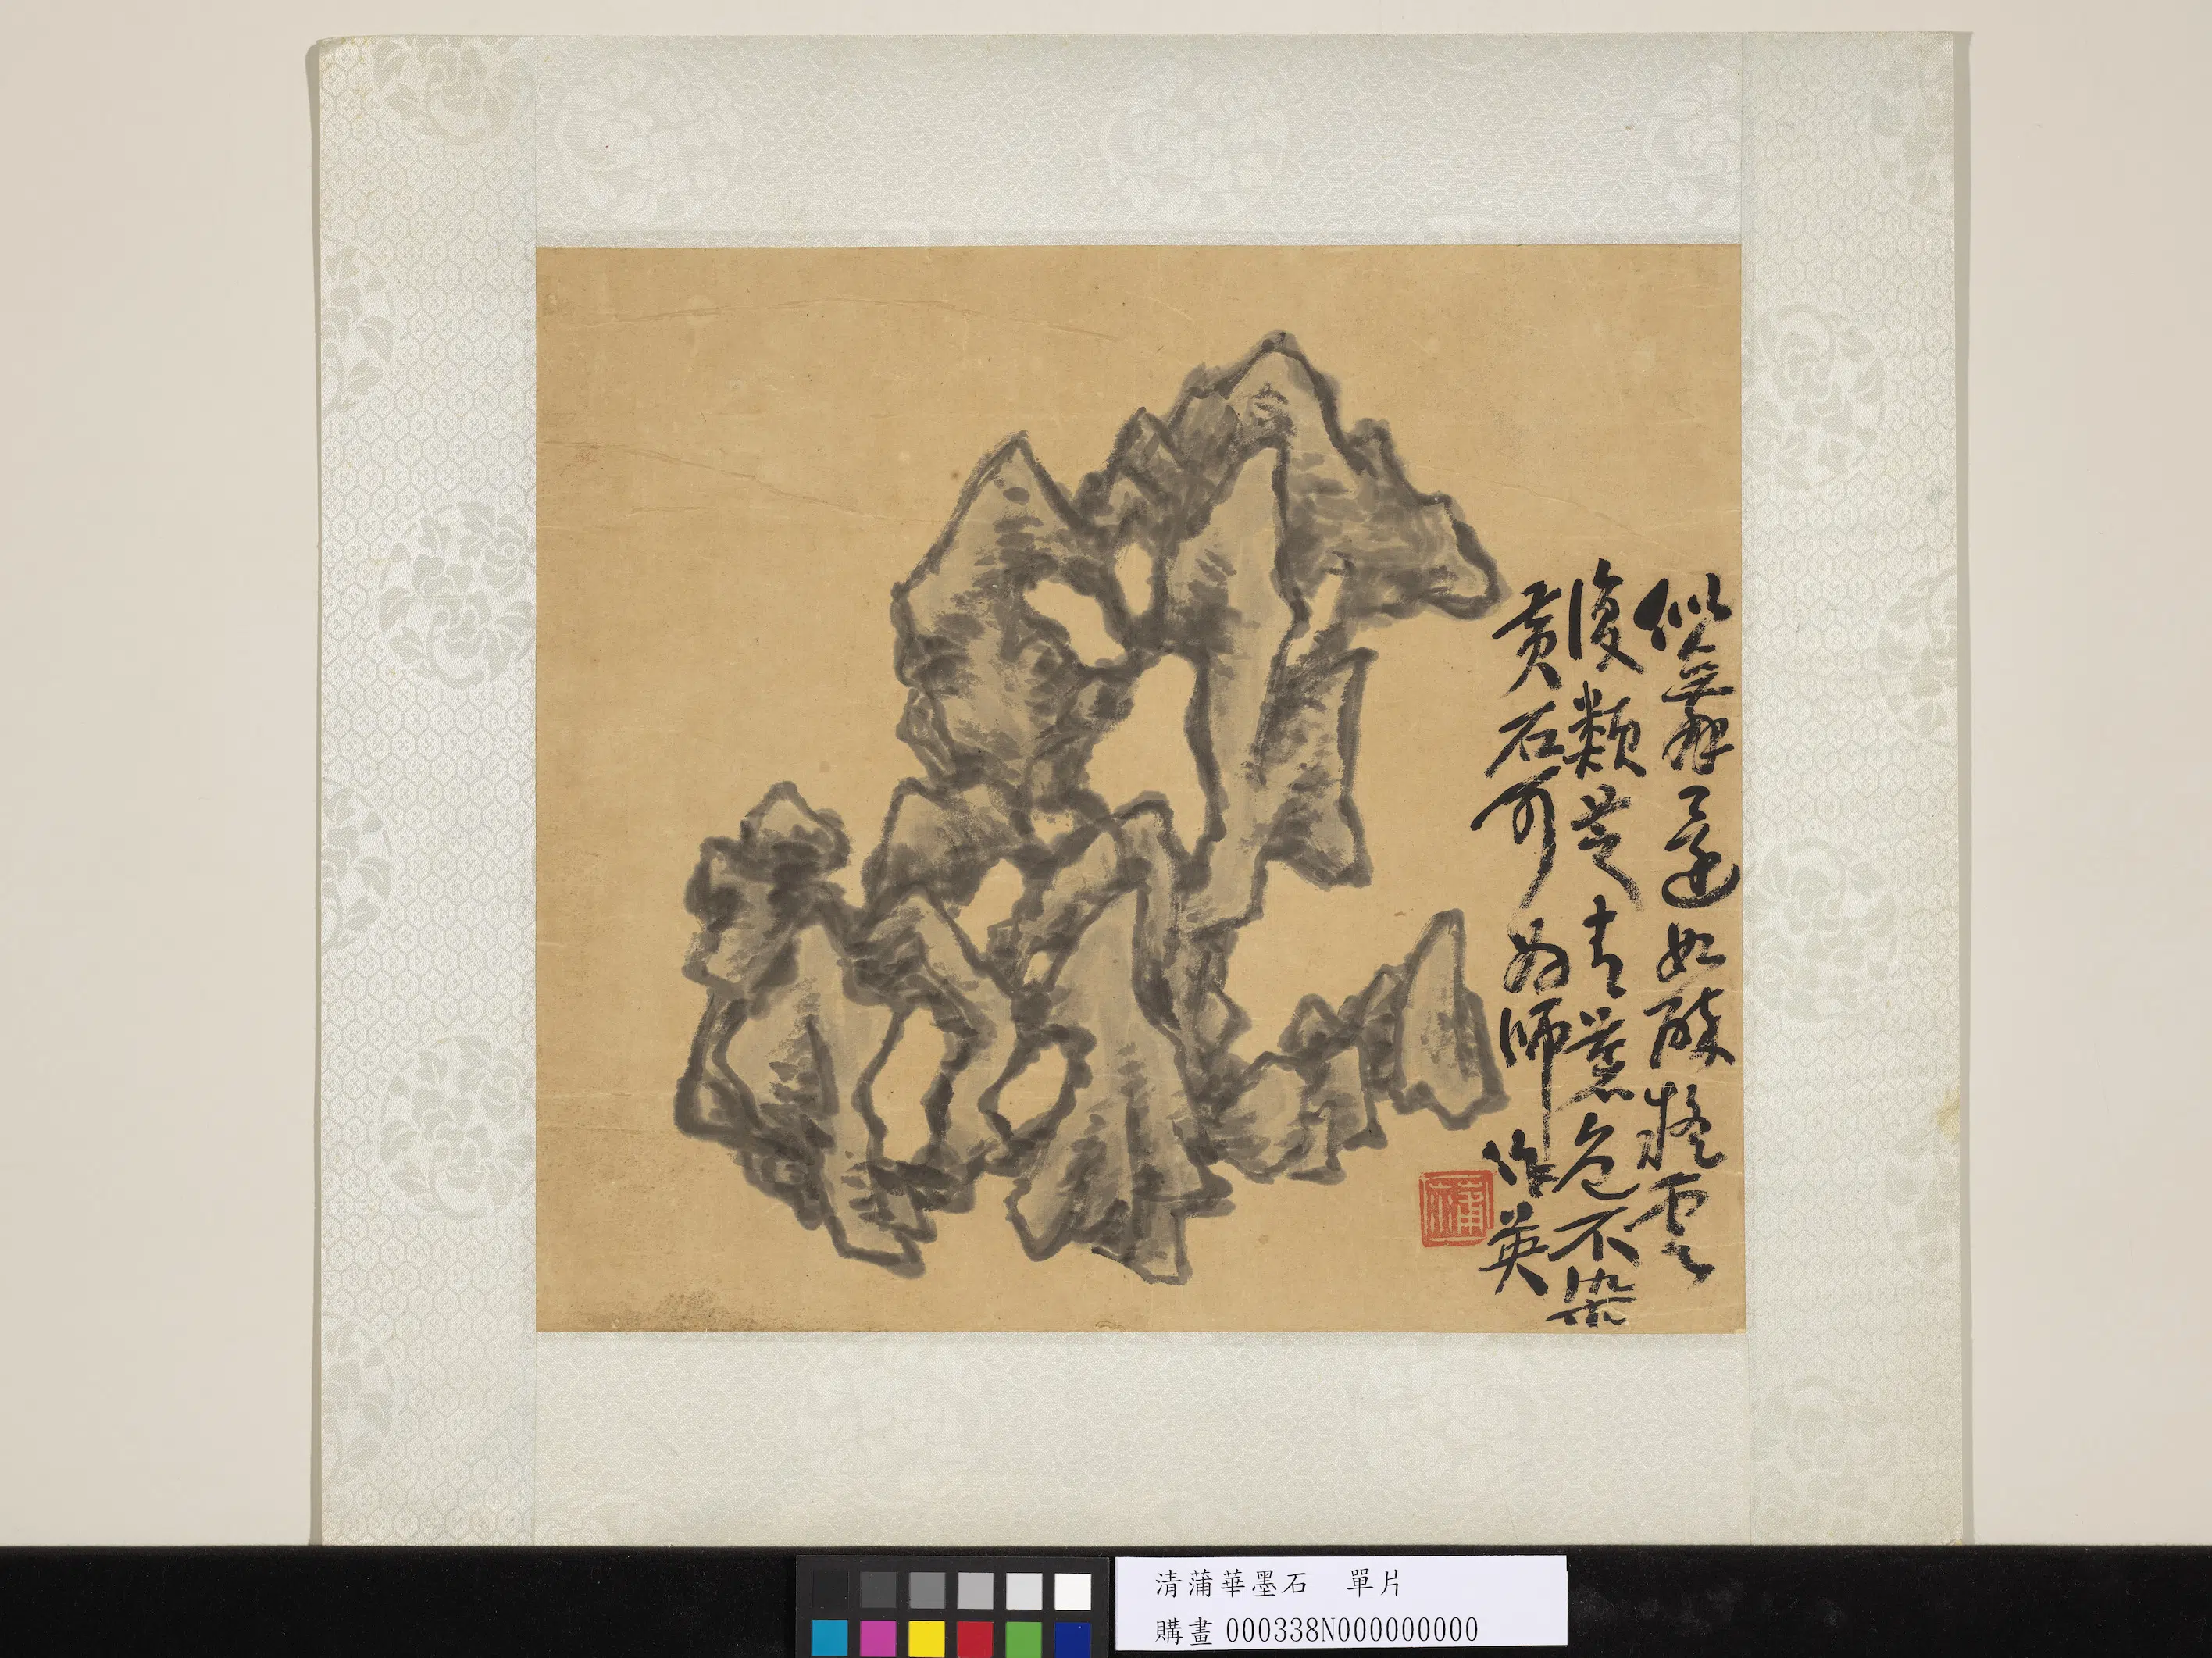 似舞還如醉疑雲
復類芝青蒼色不染
黃石可為師 作英
蒲
清蒲華墨石 單片
購畫 000338N000000000